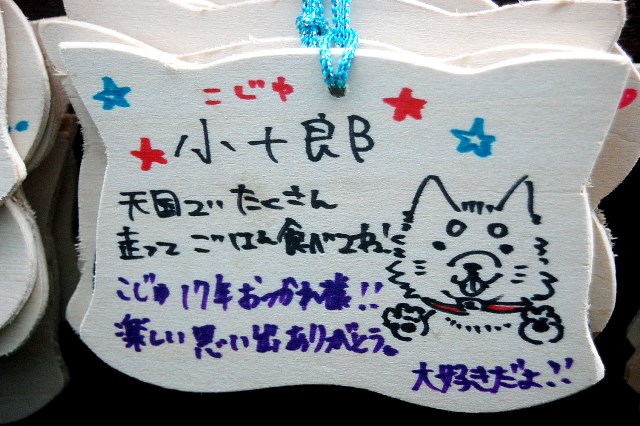 こじゅ
小十郎
天国でいたくさん
走ってごはん食べてね!
こじゅ17年おつかれ様!!
楽しい思い出ありがとう。
大好きだよ!!